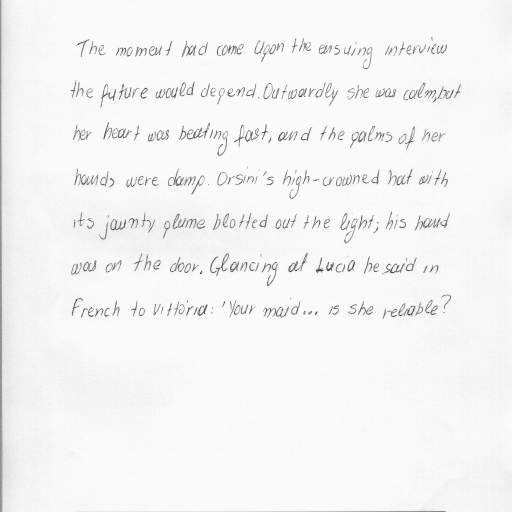 The moment had come. Upon the ensuing interview
the future would depend. Outwardly she was calm, but
her heart was beating fast, and the palms of her
hands were damp. Orsini's high-crowned hat with
its jaunty plume blotted out the light; his hand
was on the door. Glancing at Lucia he said in
French to Vittoria: 'Your maid... is she reliable?